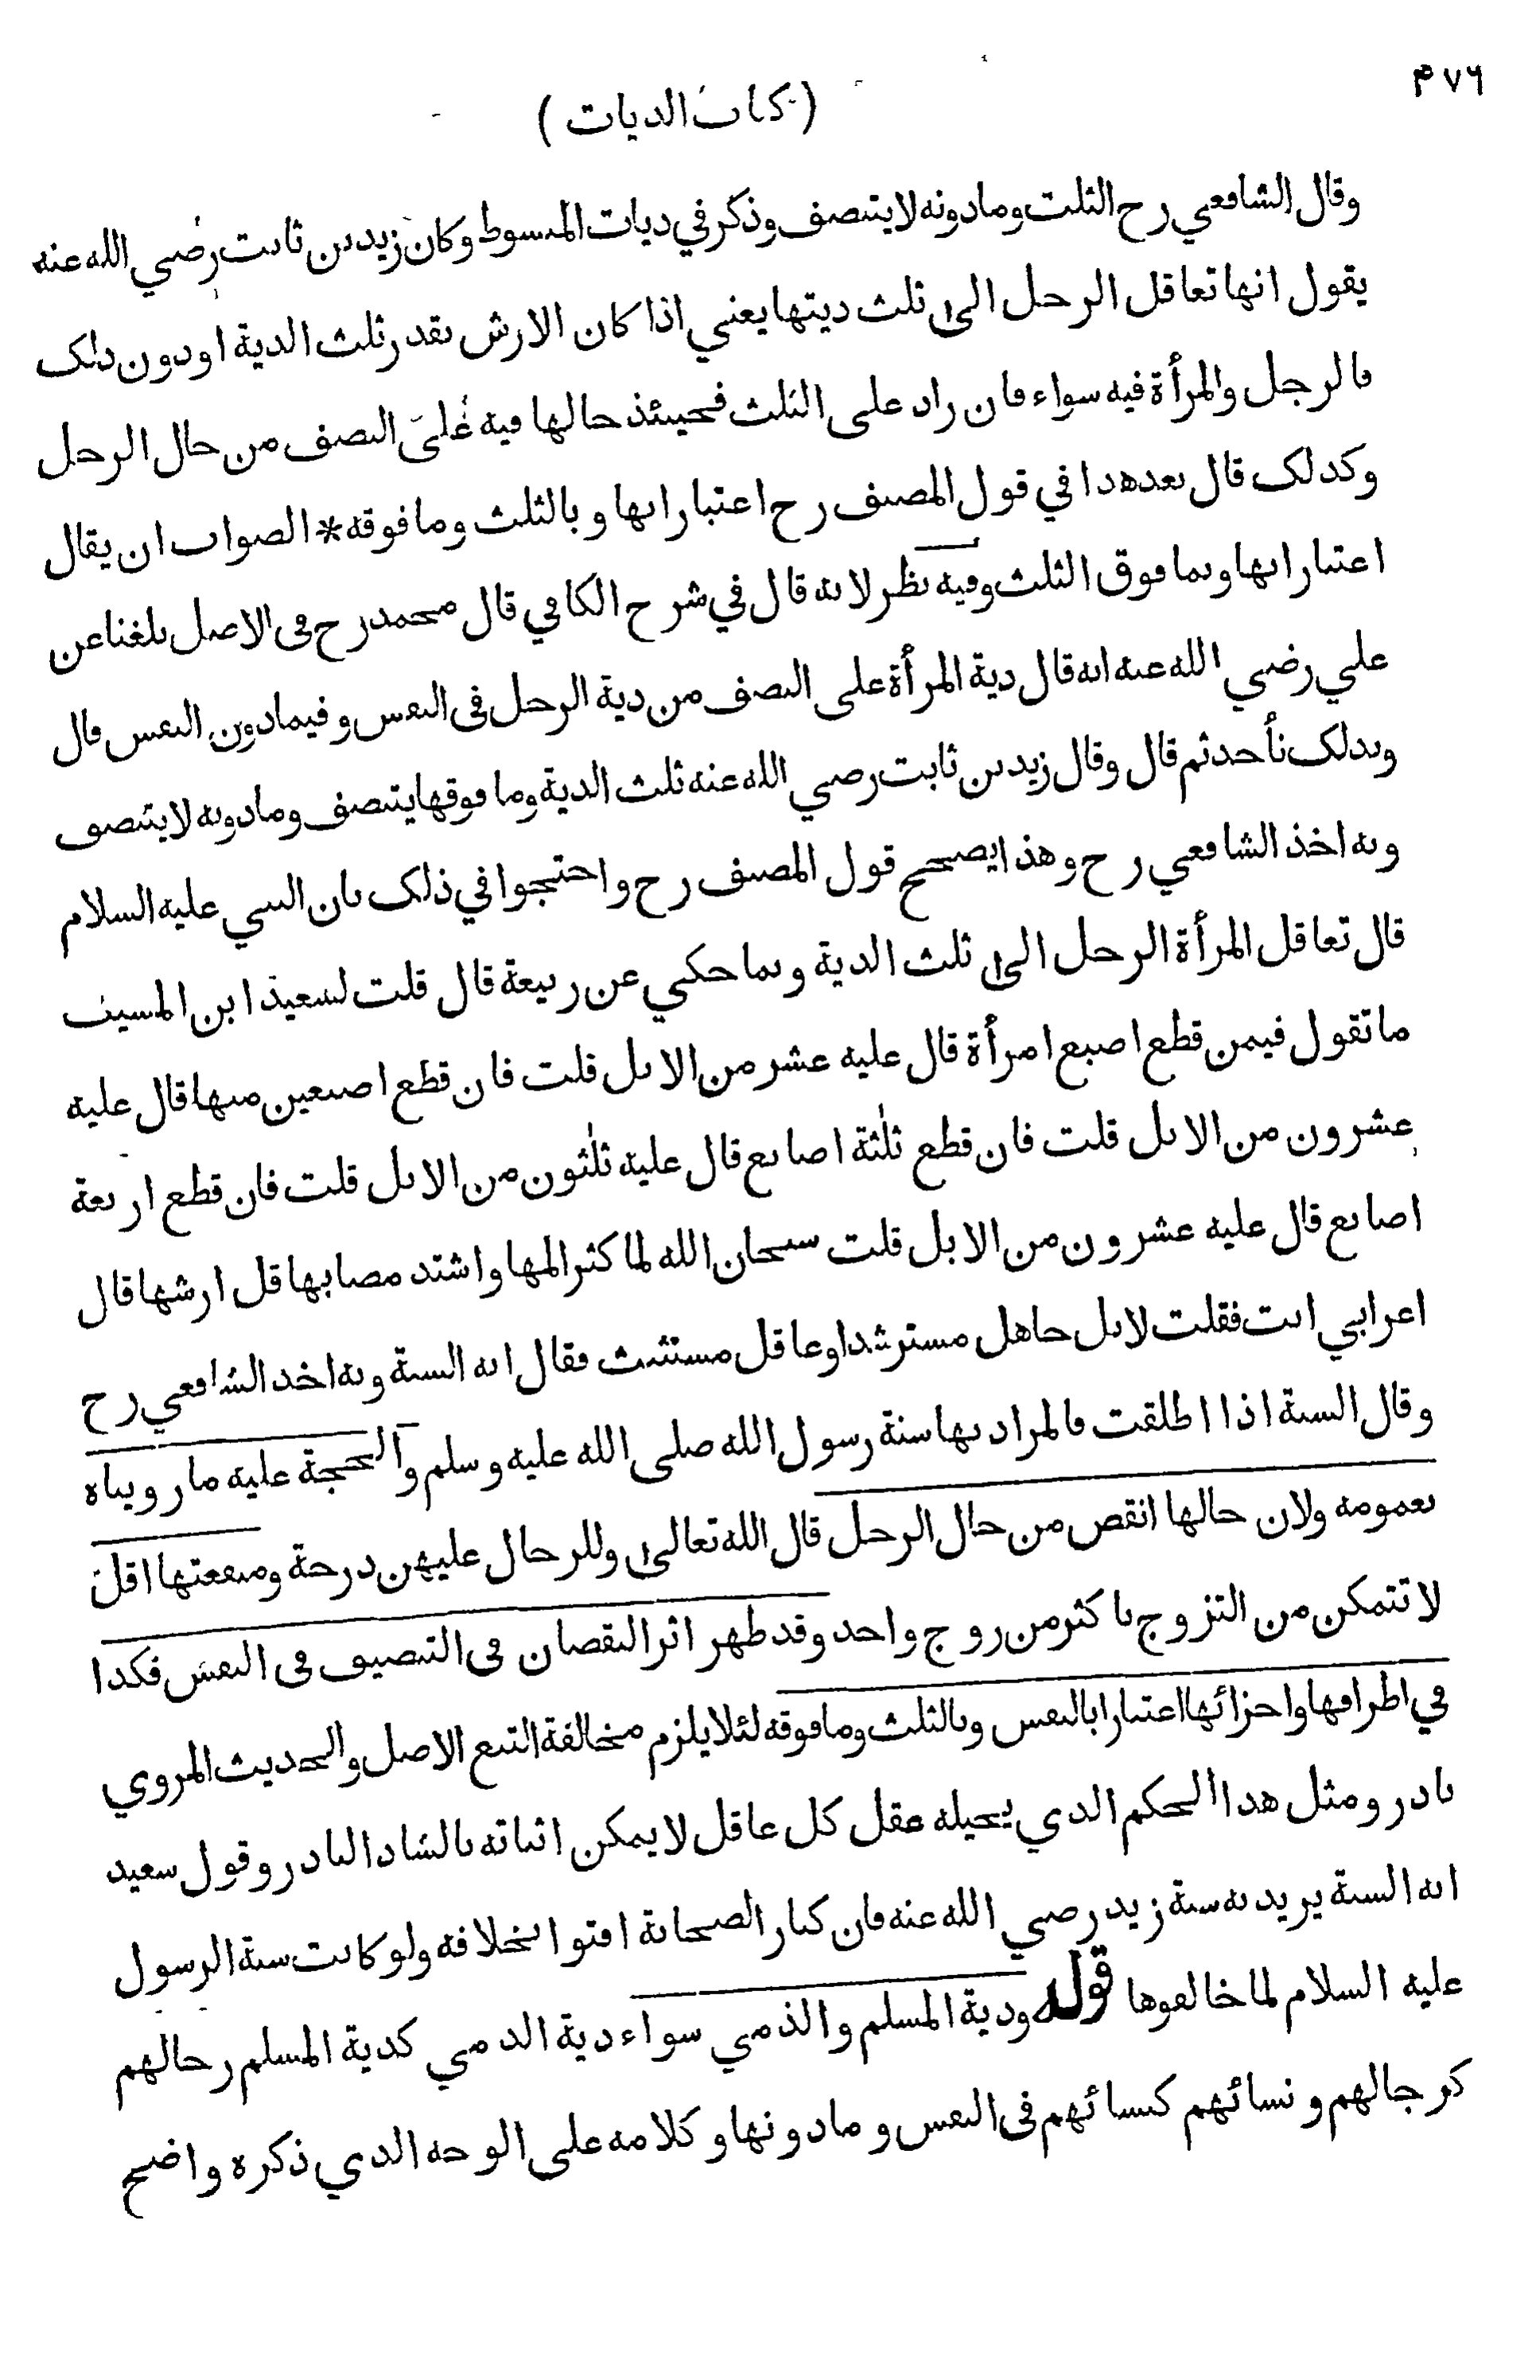 ۴۷۶
( كتاب الديات )
وقال الشافعي رح الثلث ومادونه لايتنصف وذكر في ديات المبسوط وكان زيد بن ثابت رضي الله عنه
يقول انها تعاقل الرجل الى ثلث ديتها يعني اذا كان الارش بقدر ثلث الدية او دون ذلك
فالرجل والمرأة فيه سواء فان زاد على الثلث فحينئذ حالها فيه على النصف من حال الرجل
وكذلك قال بعد هذا في قول المصنف رح اعتبارا بها وبالثلث وما فوقه * الصواب ان يقال
اعتبارا بها وبما فوق الثلث وفيه نظر لانه قال في شرح الكافي قال محمد رح في الاصل بلغنا عن
علي رضي الله عنه انه قال دية المرأة على النصف من دية الرجل في النفس وفيما دون النفس قال
وبذلك نأخذ ثم قال وقال زيد بن ثابت رضي الله عنه ثلث الدية وما فوقها يتنصف ومادونه لايتنصف
وبه اخذ الشافعي رح وهذا يصحح قول المصنف رح واحتجوا في ذلك بان النبي عليه السلام
قال تعاقل المرأة الرجل الى ثلث الدية وبما حكي عن ربيعة قال قلت لسعيد ابن المسيب
ما تقول فيمن قطع اصبع امرأة قال عليه عشر من الابل قلت فان قطع اصبعين منها قال عليه
عشرون من الابل قلت فان قطع ثلثة اصابع قال عليه ثلثون من الابل قلت فان قطع اربعة
اصابع قال عليه عشرون من الابل قلت سبحان الله لما كثر المها واشتد مصابها قل ارشها قال
اعرابي انت فقلت لابل جاهل مسترشد او عاقل مستثبت فقال انه السنة وبه اخذ الشافعي رح
وقال السنة اذا اطلقت فالمراد بها سنة رسول الله صلى الله عليه وسلم والحجة عليه ما رويناه
بعمومه ولان حالها انقص من حال الرجل قال الله تعالى وللرجال عليهن درجة ومنفعتها اقل
لا تتمكن من التزوج باكثر من زوج واحد وقد ظهر اثر النقصان في التنصيف في النفس فكذا
في اطرافها واجزائها اعتبارا بالنفس وبالثلث وما فوقه لئلا يلزم مخالفة التبع الاصل والحديث المروي
نادر ومثل هذا الحكم الذي يحيله عقل كل عاقل لا يمكن اثباته بالشاذ النادر وقول سعيد
انه السنة يريد به سنة زيد رضي الله عنه فان كبار الصحابة افتوا بخلافه ولو كانت سنة الرسول
عليه السلام لما خالفوها قوله ودية المسلم والذمي سواء دية الذمي كدية المسلم رجالهم
كرجالهم ونسائهم كنسائهم في النفس وما دونها وكلامه على الوجه الذي ذكره واضح